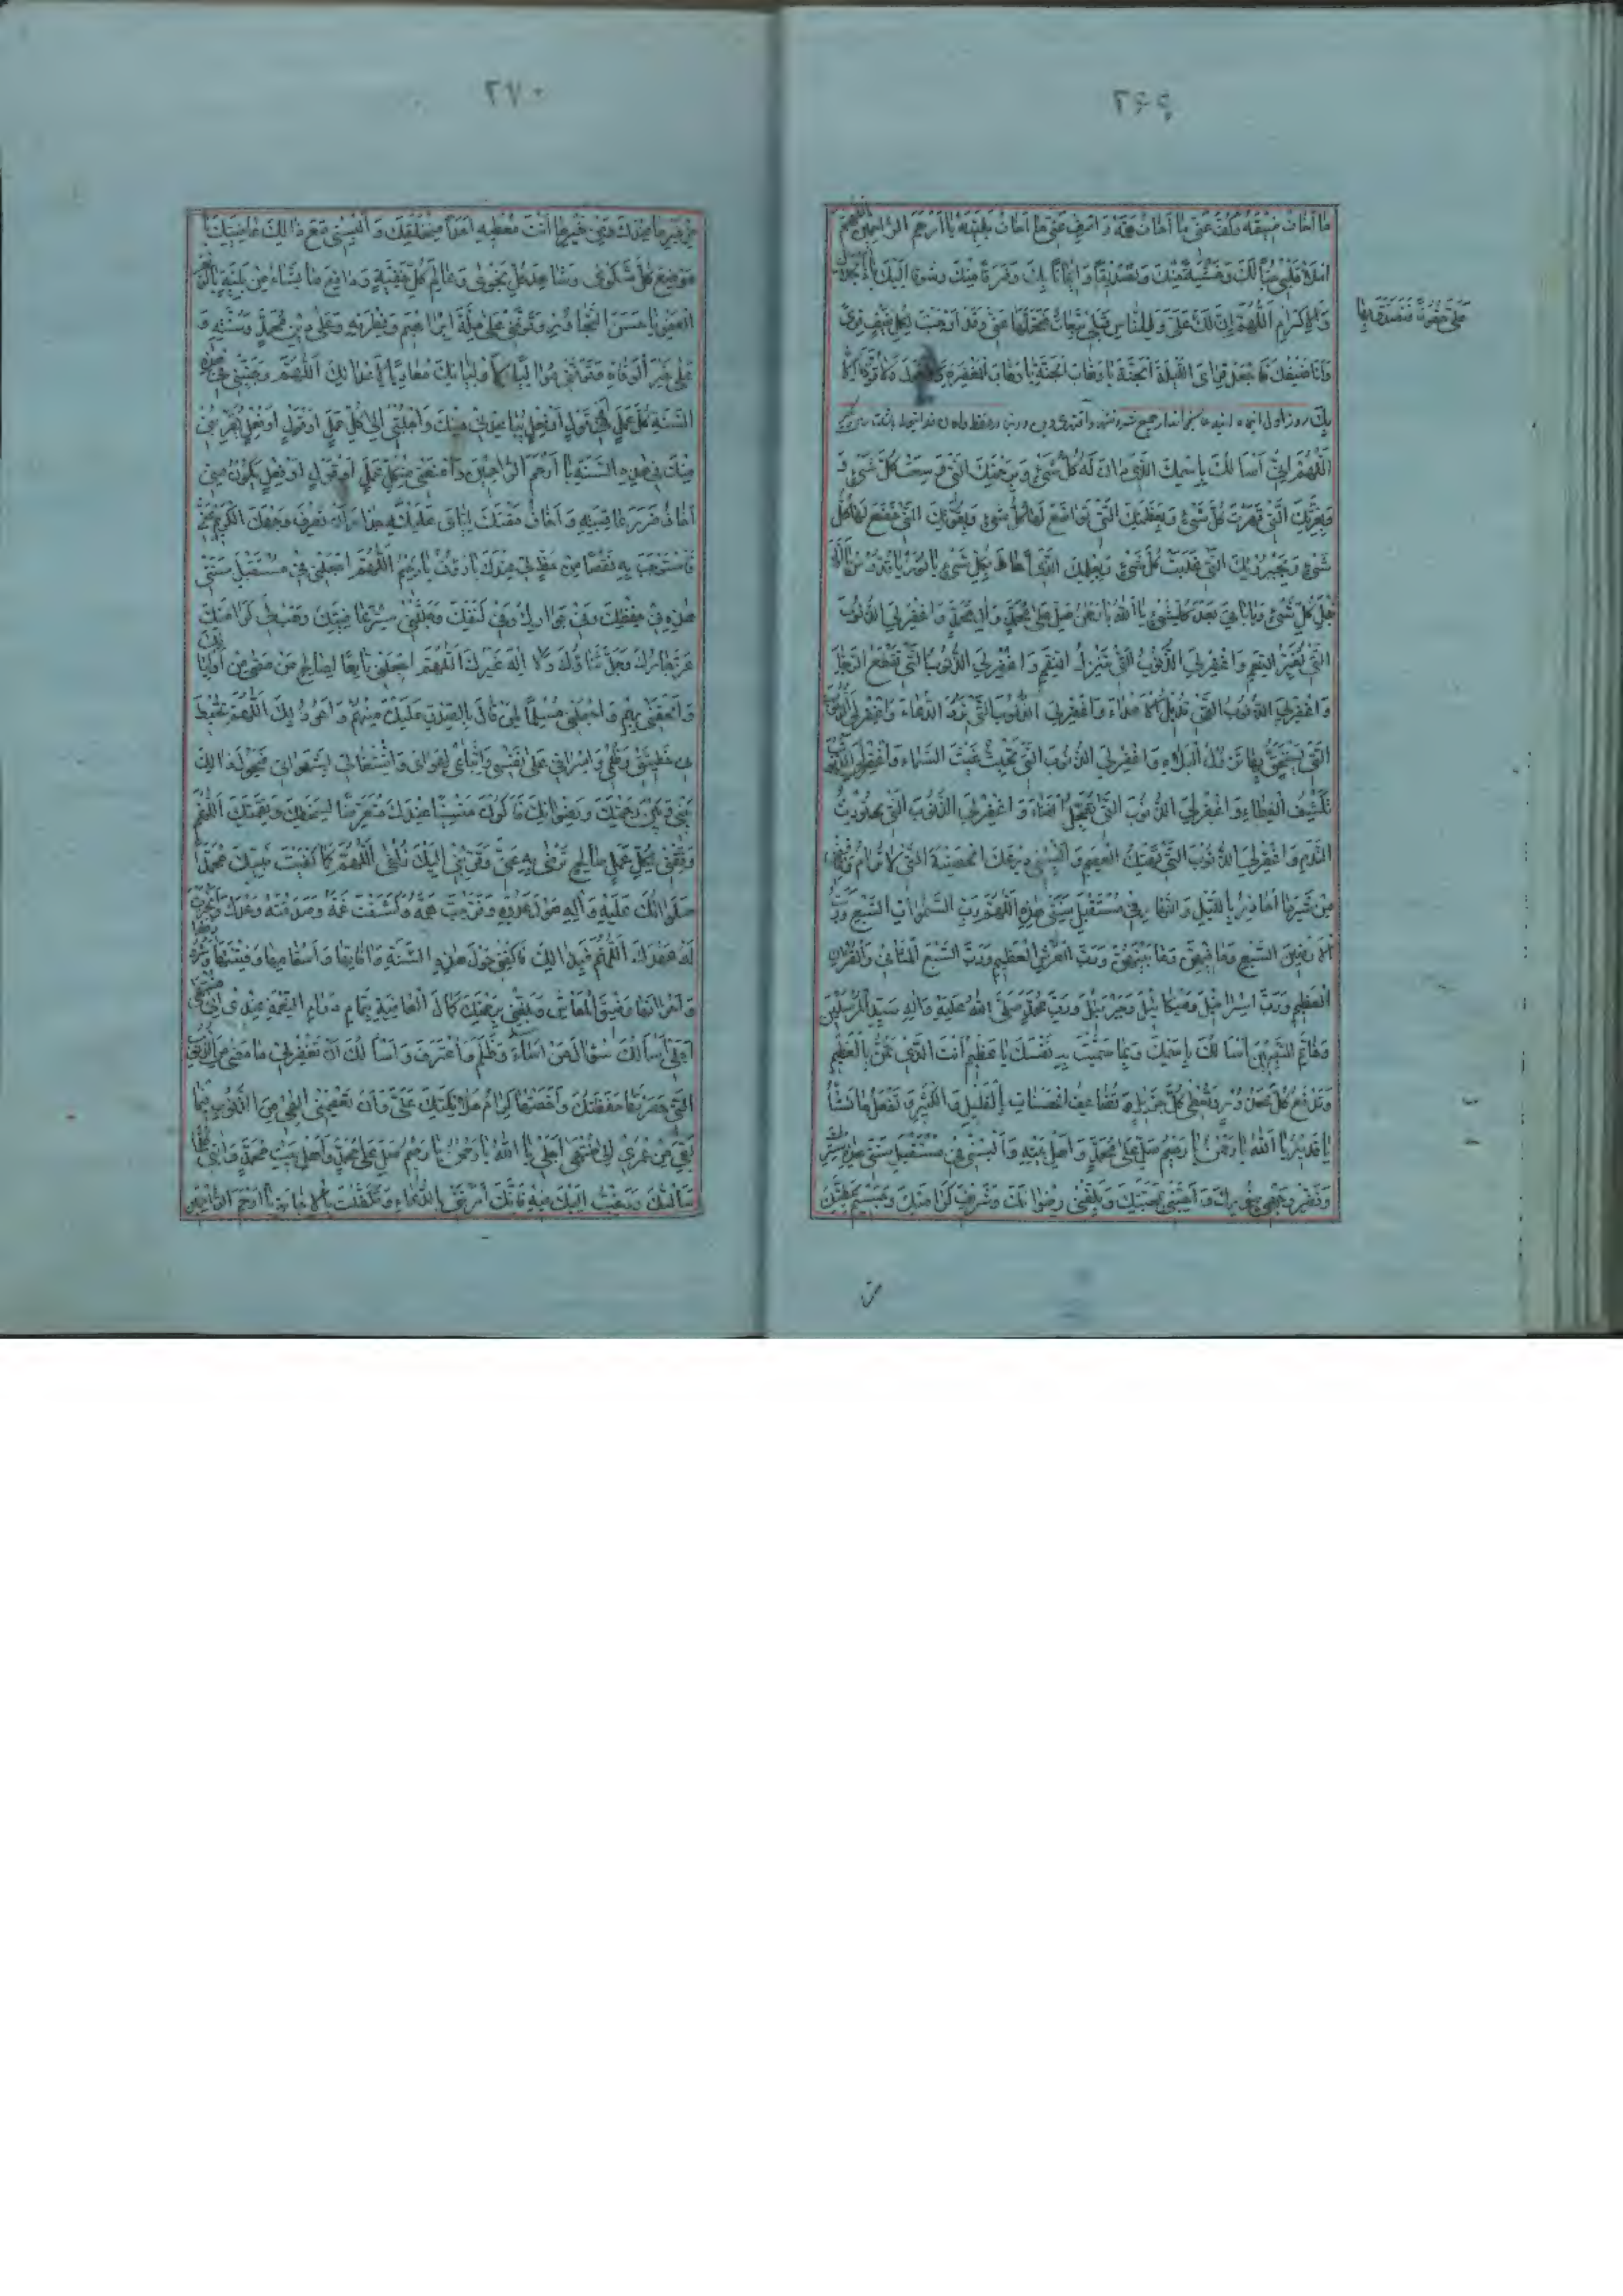 ٢۶٩
ما أخاف ضيقه وكف عني ما أخاف همه و اصرف عني ما أخاف بليته يا أرحم الراحمين اللهم
املاء قلبي حبا لك وخشية منك وتصديقا و ايمانا بك وفرقا منك وشوقا اليك يا ذا الجلال
والاكرام اللهم ان لك علي وللناس قبلي تبعات فتحملها عني وقد أوجبت لكل ضيف قرى
وأنا ضيفك فاجعل قراي الليلة الجنة يا وهاب الجنة يا وهاب المغفرة ولا قوة الا
على حقوقا فتصدق بها
اللهم اني أسألك باسمك الذي دان له كل شيء وبرحمتك التي وسعت كل شيء و
وبعزتك التي قهرت كل شيء وبعظمتك التي تواضع لها كل شيء وبقوتك التي خضع لها كل
شيء وبجبروتك التي غلبت كل شيء وبعلمك الذي أحاط بكل شيء يا نور يا قدوس يا أول
قبل كل شيء ويا باقي بعد كل شيء يا الله يا رحمن صل على محمد وال محمد واغفر لي الذنوب
التي تغير النعم واغفر لي الذنوب التي تنزل النقم واغفر لي الذنوب التي تقطع الرجاء
واغفر لي الذنوب التي تديل الاعداء واغفر لي الذنوب التي ترد الدعاء واغفر لي الذنوب
التي يستحق بها نزول البلاء واغفر لي الذنوب التي تحبس غيث السماء واغفر لي الذنوب التي
تكشف الغطاء واغفر لي الذنوب التي تعجل الفناء واغفر لي الذنوب التي تورث
الندم واغفر لي الذنوب التي تهتك العصم وألبسني درعك الحصينة التي لا ترام وعافني
من شر ما أحاذر بالليل والنهار في مستقبل سنتي هذه اللهم رب السموات السبع ورب
الارضين السبع وما فيهن وما بينهن ورب العرش العظيم ورب السبع المثاني والقران
العظيم ورب اسرافيل وميكائيل وجبرئيل ورب محمد صلى الله عليه واله سيد المرسلين
وخاتم النبيين أسألك باسمك وبما سميت به نفسك يا عظيم أنت الذي تمن بالعظيم
وتدفع كل محذور وتعطي كل جزيل وتضاعف الحسنات بالقليل والكثير وتفعل ما تشاء
يا قدير يا الله يا رحمن يا رحيم صل على محمد وأهل بيته وألبسني في مستقبل سنتي هذه سترك
ونضر وجهي بنورك وأحبني بمحبتك وبلغني رضوانك وشريف كرامتك وجسيم عطيتك
من
٢٧٠
من خير ما عندك ومن خير ما أنت معطيه أحدا من خلقك وألبسني مع ذالك عافيتك يا
موضع كل شكوى وشاهد كل نجوى وعالم كل خفية ودافع ما يشاء من بلية يا كريم
العفو يا حسن التجاوز وتوفني على ملة ابراهيم وفطرته وعلى دين محمد وسنته و
على خير الوفاة فتوفني مواليا لاوليائك معاديا لاعدائك اللهم وجنبني في هذه
السنة كل عمل أو قول أو فعل يباعدني منك واجلبني الى كل عمل أو قول أو فعل يقربني
منك في هذه السنة يا أرحم الراحمين وامنعني من كل عمل أو قول أو فعل يكون مني
أخاف ضرر عاقبته وأخاف مقتك اياي عليه حذار أن تصرف وجهك الكريم عني
فأستوجب به نقصا من حظ لي عندك يا رؤف يا رحيم اللهم اجعلني في مستقبل سنتي
هذه في حفظك وفي جوارك وفي كنفك وجللني ستر عافيتك وهب لي كرامتك
عز جارك وجل ثناؤك ولا اله غيرك اللهم اجعلني تابعا لصالحي من مضى من أوليائك
وألحقني بهم واجعلني مسلما لمن قال بالصدق عليك منهم وأعوذ بك اللهم أن تحيط
بي خطيئتي وظلمي واسرافي على نفسي واتباعي لهواي واشتغالي بشهواتي فيحول ذالك
بيني وبين رحمتك ورضوانك فأكون منسيا عندك متعرضا لسخطك ونقمتك اللهم
وفقني لكل عمل صالح ترضى به عني وقربني اليك زلفى اللهم كما كفيت نبيك محمدا
صلواتك عليه واله هول عدوه وفرجت همه وكشفت غمه وصدقته وعدك وأنجزت
له عهدك اللهم فبذالك فاكفني هول هذه السنة وافاتها وأسقامها وفتنتها وشرورها
وأحزانها وضيق المعاش وبلغني برحمتك كمال العافية بتمام دوام النعمة عندي الى منتهى
أجلي أسألك سؤال من أساء وظلم واعترف وأسألك أن تغفر لي ما مضى من الذنوب
التي حصرتها حفظتك وأحصتها كرام ملائكتك علي وأن تعصمني الهي من الذنوب فيما
بقي من عمري الى منتهى أجلي يا الله يا رحمن يا رحيم صل على محمد وأهل بيت محمد واتني كلما
سألتك ورغبت اليك فيه فانك أمرتني بالدعاء وتكفلت بالاجابة يا أرحم الراحمين